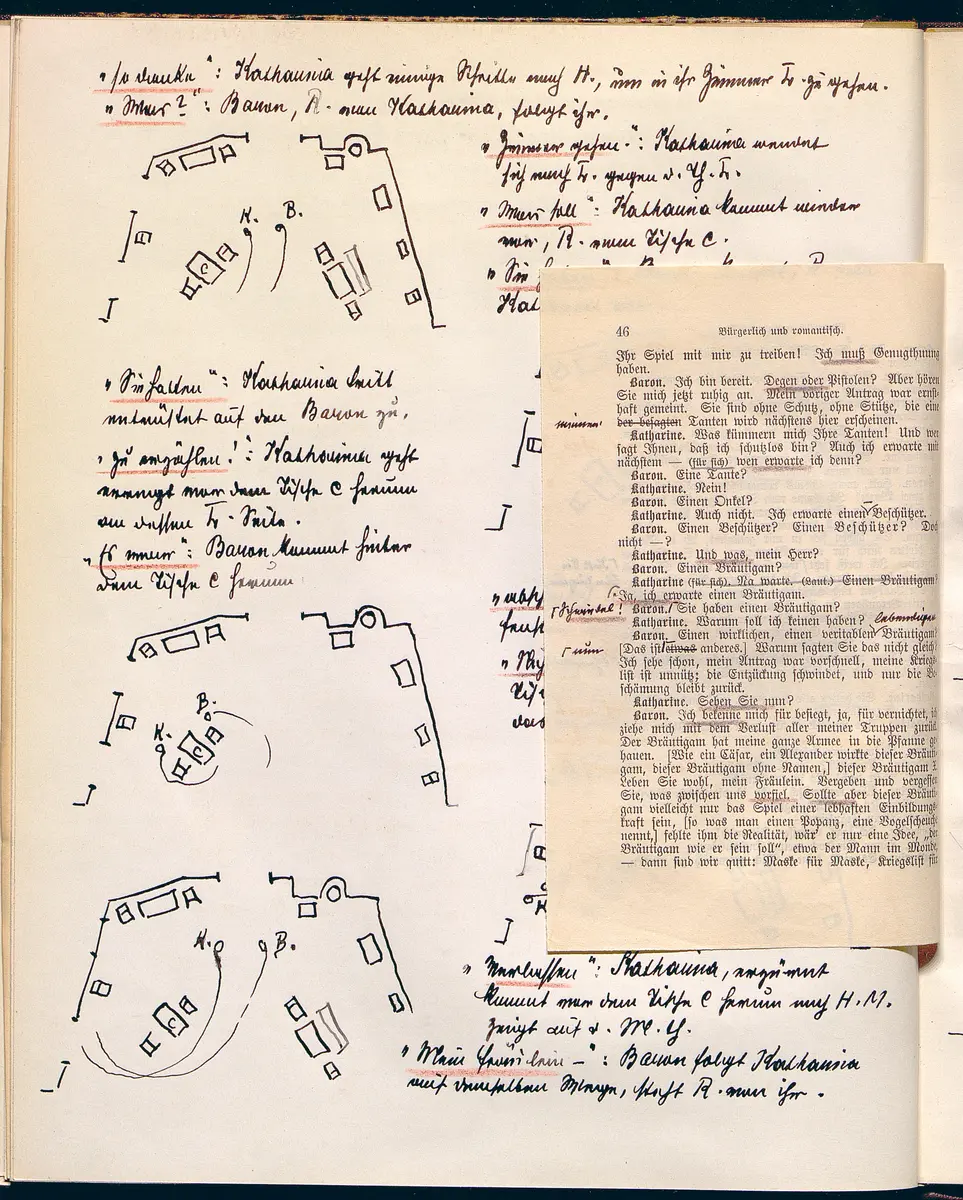 "so danke": Katharina geht einige Schritte nach H., um in ihr Zimmer L. zu gehen.
"Was?": Baron, R. von Katharina, folgt ihr.
"Zimmer gehen": Katharina wendet
sich nach L. gegen d. Th. L.
"Was soll": Katharina kommt wieder
vor, R. vom Tische C.
Kat
K. B.
C
"Sie halten": Katharina tritt
entrüstet auf den Baron zu.
"zu erzählen!": Katharina geht
erregt vor dem Tische C herum
an dessen L. Seite.
"Es war": Baron kommt hinter
dem Tische C herum
K. B.
C
K. B.
C
"Verlassen": Katharina, erzürnt
kommt vor dem Tische C herum nach H. M.
zeigt auf d. M. Th.
"Mein Fräulein –": Baron folgt Katharina
auf demselben Wege, steht R. von ihr.
46 Bürgerlich und romantisch.
Ihr Spiel mit mir zu treiben! Ich muß Genugthuung
haben.
Baron. Ich bin bereit. Degen oder Pistolen? Aber hören
Sie mich jetzt ruhig an. Mein voriger Antrag war ernst-
haft gemeint. Sie sind ohne Schutz, ohne Stütze, die eine
meiner
der besagten Tanten wird nächstens hier erscheinen.
Katharine. Was kümmern mich Ihre Tanten! Und wer
sagt Ihnen, daß ich schutzlos bin? Auch ich erwarte mit
nächstem — (für sich) wen erwarte ich denn?
Baron. Eine Tante?
Katharine. Nein!
Baron. Einen Onkel?
Katharine. Auch nicht. Ich erwarte einen Beschützer.
Baron. Einen Beschützer? Einen Beschützer? Doch
nicht —?
Katharine. Und was, mein Herr?
Baron. Einen Bräutigam?
Katharine (für sich). Na warte. (Laut.) Einen Bräutigam!
Ja, ich erwarte einen Bräutigam.
Schwindel!
Baron. Sie haben einen Bräutigam?
Katharine. Warum soll ich keinen haben?
lebendigen
Baron. Einen wirklichen, einen veritablen Bräutigam?
nun
[Das ist etwas anderes.] Warum sagten Sie das nicht gleich?
Ich sehe schon, mein Antrag war vorschnell, meine Kriegs-
list ist unnütz; die Entzückung schwindet, und nur die Be-
schämung bleibt zurück.
Katharine. Sehen Sie nun?
Baron. Ich bekenne mich für besiegt, ja, für vernichtet, ich
ziehe mich mit dem Verlust aller meiner Truppen zurück.
Der Bräutigam hat meine ganze Armee in die Pfanne ge-
hauen. [Wie ein Cäsar, ein Alexander wirkte dieser Bräuti-
gam, dieser Bräutigam ohne Namen,] dieser Bräutigam X.
Leben Sie wohl, mein Fräulein. Vergeben und vergessen
Sie, was zwischen uns vorfiel. Sollte aber dieser Bräuti-
gam vielleicht nur das Spiel einer lebhaften Einbildungs-
kraft sein, [so was man einen Popanz, eine Vogelscheuche
nennt,] fehlte ihm die Realität, wär' er nur eine Idee, „der
Bräutigam wie er sein soll“, etwa der Mann im Monde,
— dann sind wir quitt: Maske für Maske, Kriegslist für